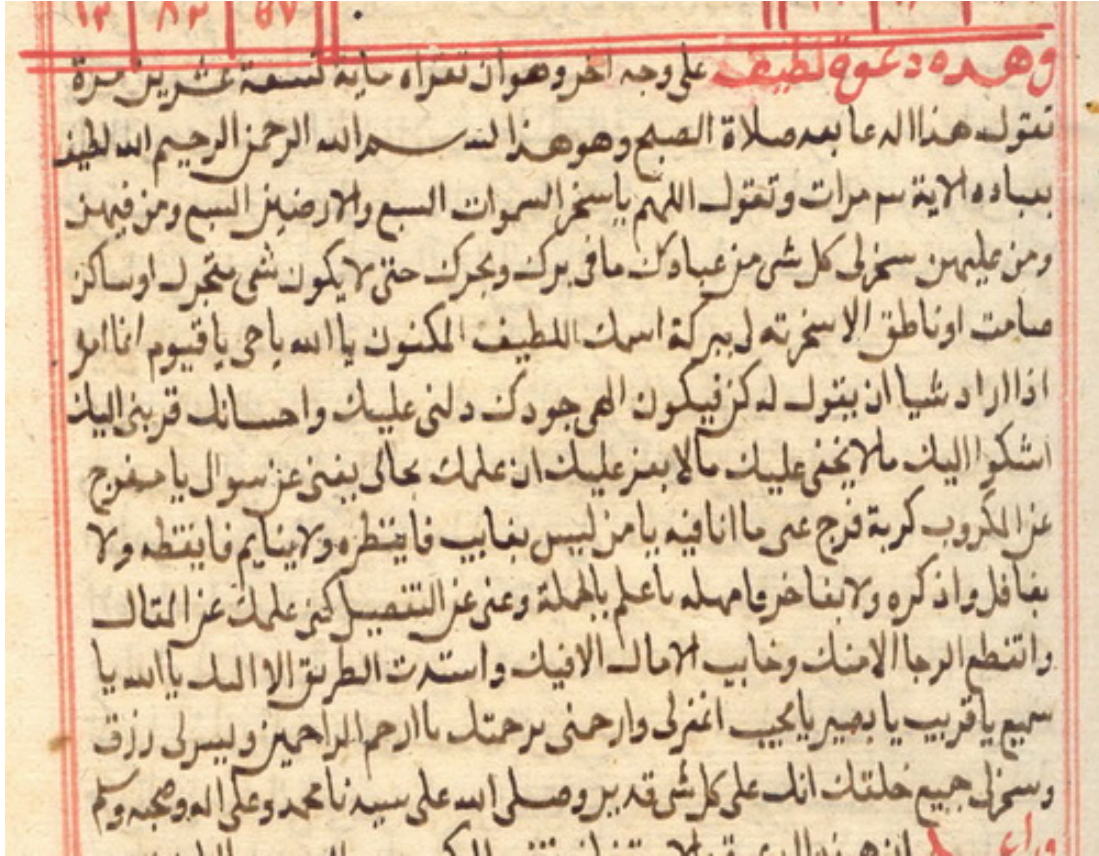 ١٣ ٨٣ ٥٧
وهذه دعوة لطيفه على وجه اخر وهو ان تقراه ماية تسعة عشرين مرة
تقول هذا الدعا بعد صلاة الصبح وهو هذا بسم الله الرحمن الرحيم الله لطيف
بعباده الاية مرات وتقول اللهم يا مسخر السموات السبع والارضين السبع ومن فيهن
ومن عليهن سخر لى كل شى من عبادك ما فى برك وبحرك حتى لا يكون شى متحرك او ساكن
صامت او ناطق الا سخرته لى ببركة اسمك اللطيف المكنون يا الله يا حى يا قيوم انما امر
اذا اراد شيا ان يقول له كن فيكون الهى جودك دلنى عليك واحسانك قربنى اليك
اشكوا اليك ما لا يخفى عليك ما لا يعز عليك ان علمك بحالى يغنى عن سوال يا مفرج
عن المكروب كربة فرج عنى ما انا فيه يا من ليس بغايب فاينتظره ولا بنايم فايقظه ولا
بغافل واذكره ولا يا علم بالجملة وغنى عن التفصيل كفى علمك عن المقال
وانقطع الرجا الا منك وخايب الامال الا فيك واستدت الطريق الا اليك يا الله يا
سميع يا قريب يا بصير يا مجيب اغفر لى وارحمنى برحمتك يا ارحم الراحمين ويسر لى رزق
وسخر لى جميع خلقك انك على كل شى قدير وصلى الله على سيدنا محمد وعلى اله وصحبه وسلم